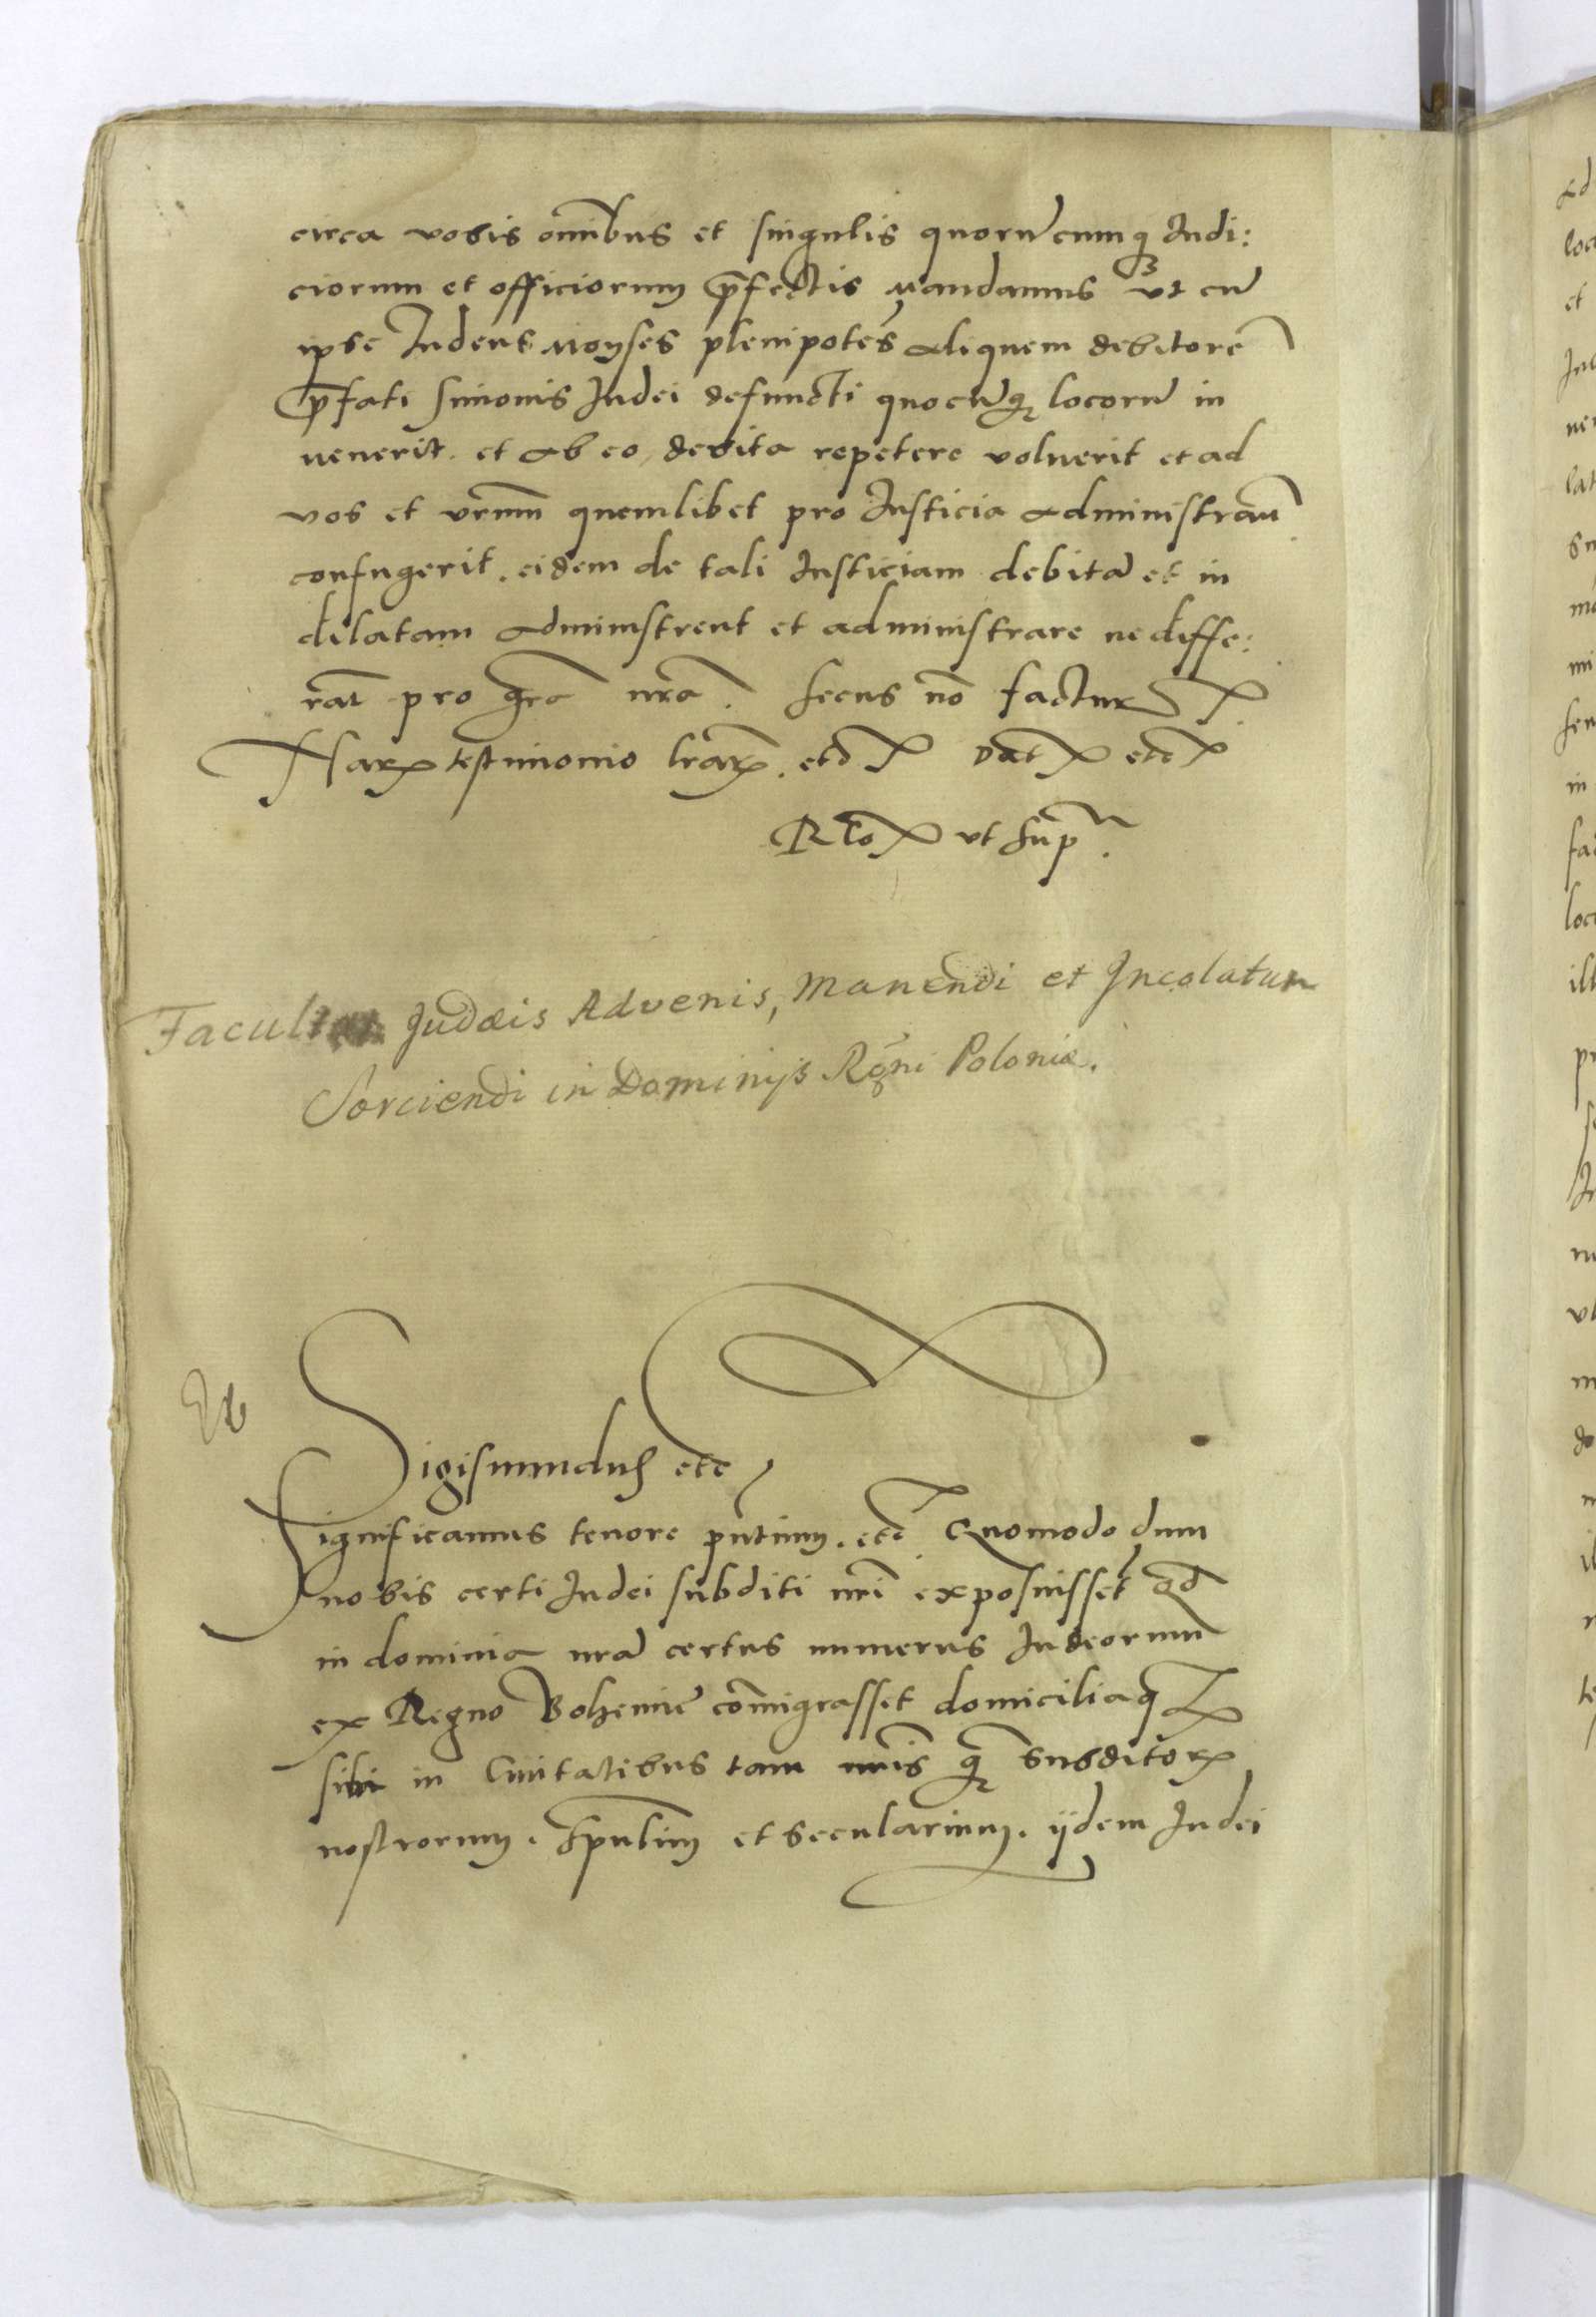 circa vobis omībus et singulis quorūcumqꝫ Iudi:
ciorum et officiorum p̄fectis Mandamus vt cū
ipse Iudeus Moyses plenipotēs aliquem debitorē
p̄fati Simonis Iudei defuncti quocūqꝫ locorū in
uenerit. et ab eo debita repetere voluerit et ad
vos et vr̄mm quemlibet pro Iusticia administran̄
confugerit. eidem de tali Iusticiam debitā et in
dilatam administrent et administrare ne diffe:
rāt pro gr̄a nr̄a. secus nō factur
Harꝝ testimonio lr̄arꝝ. etc Dat etc
Rtõ vt sup̄
Facultas Judæis Advenis, Manendi et Incolatum
Sorciendi in Dominijs Rgni Poloniæ.
Sigismundus etc
Significamus tenore pn̄tium. etc̄ Quomodo dum
nobis certi Iudei subditi nr̄i exposuissēt qd̄
in dominia nr̄a certus numerus Iudeorum
ex Regno Bohemie cōmigrasset domiciliaqꝫ
sibi in Ciuitatibus tam nr̄is qꝫ subditorꝝ
nostrorum. sp̄ulium et secularium. ijdem Iudei